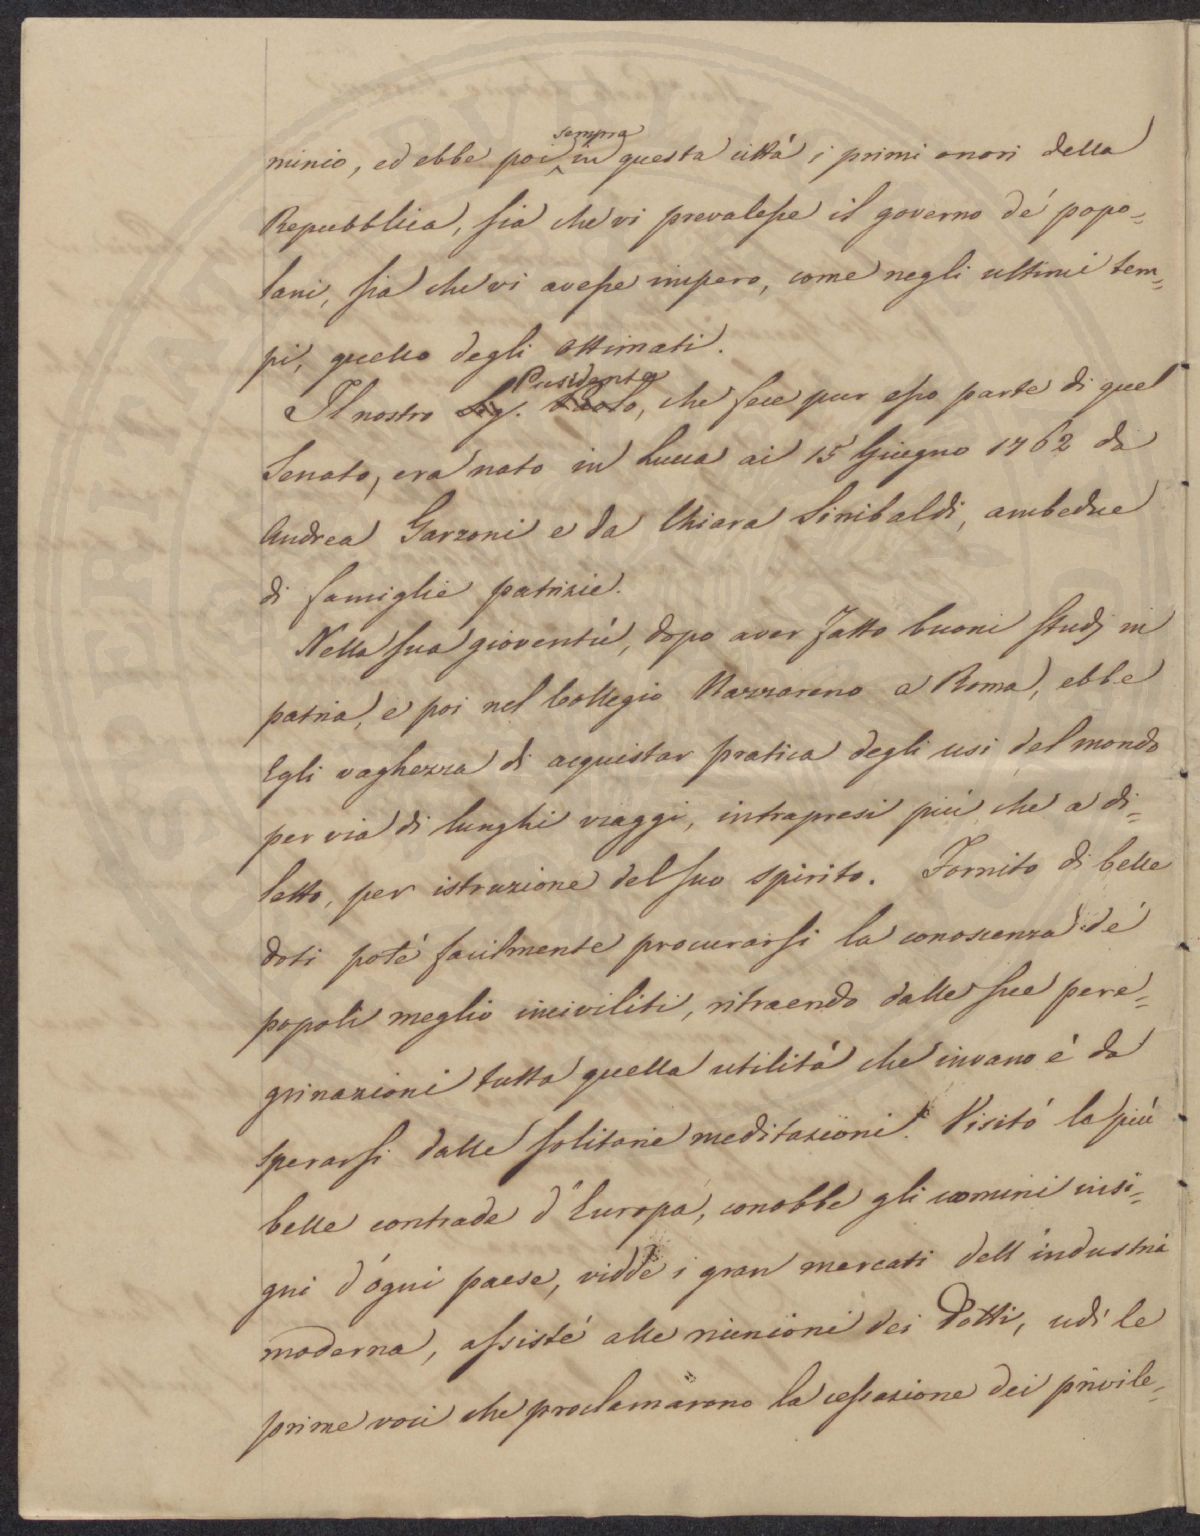 minio, ed ebbe poi sempre in questa città i primi onori della
Repubblica, sia che vi prevalesse il governo de' popo=
lani, sia che vi avesse impero, come negli ultimi tem=
pi, quello degli ottimati.
Il nostro Sig. Paolo Presidente, che fece pur esso parte di quel
Senato, era nato in Lucca ai 15 Giugno 1762 da
Andrea Garzoni e da Chiara Sinibaldi, ambedue
di famiglie patrizie.
Nella sua gioventù, dopo aver fatto buoni studj in
patria, e poi nel Collegio Nazzareno a Roma, ebbe
Egli vaghezza di acquistar pratica degli usi del mondo
per via di lunghi viaggi, intrapresi più che a di=
letto, per istruzione del suo spirito. Fornito di belle
doti poté facilmente procurarsi la conoscenza de'
popoli meglio inciviliti, ritraendo dalle sue pere=
grinazioni tutta quella utilità che invano è da
sperarsi dalle solitarie meditazioni. Visitò le più
belle contrade d'Europa, conobbe gli uomini insi=
gni d'ogni paese, vidde i gran mercati dell'industria
moderna, assisté alle riunioni dei Dotti, udì le
prime voci che proclamarono la cessazione dei privile=